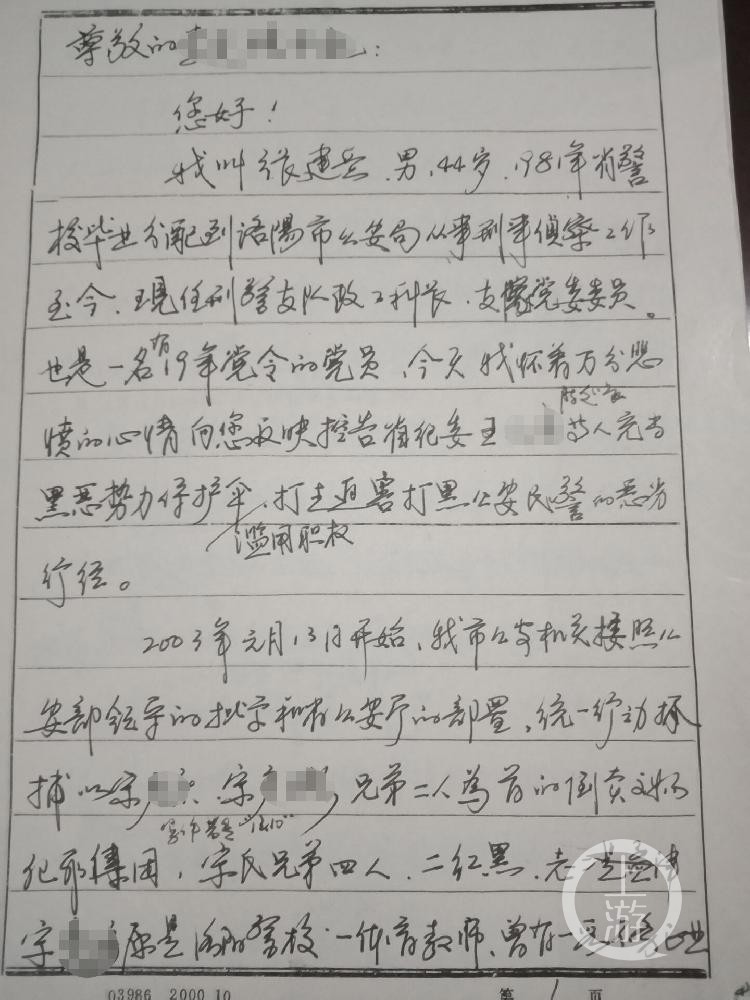 尊敬的
您好！
我叫张建兵，男，44岁，1981年省警
校毕业分配到洛阳市公安局从事刑事侦察工作
至今，现任刑警支队政工科长，支队党委委员。
也是一名有19年党令的党员，今天我怀着万分悲
愤的心情向您反映控告省纪委王 等人充当
黑恶势力保护伞，滥用职权打击迫害打黑公安民警的恶劣
行径。
2003年元月13日开始，我市公安机关按照公
安部领导的批字和省公安厅的部署，统一行动抓
捕以宋 宋 兄弟二人为首的倒卖文物
犯罪集团，宋氏兄弟四人，二红黑，老
宋 原是洛阳警校一体育教师，曾有一
03986 2000.10
第 1 页
上游